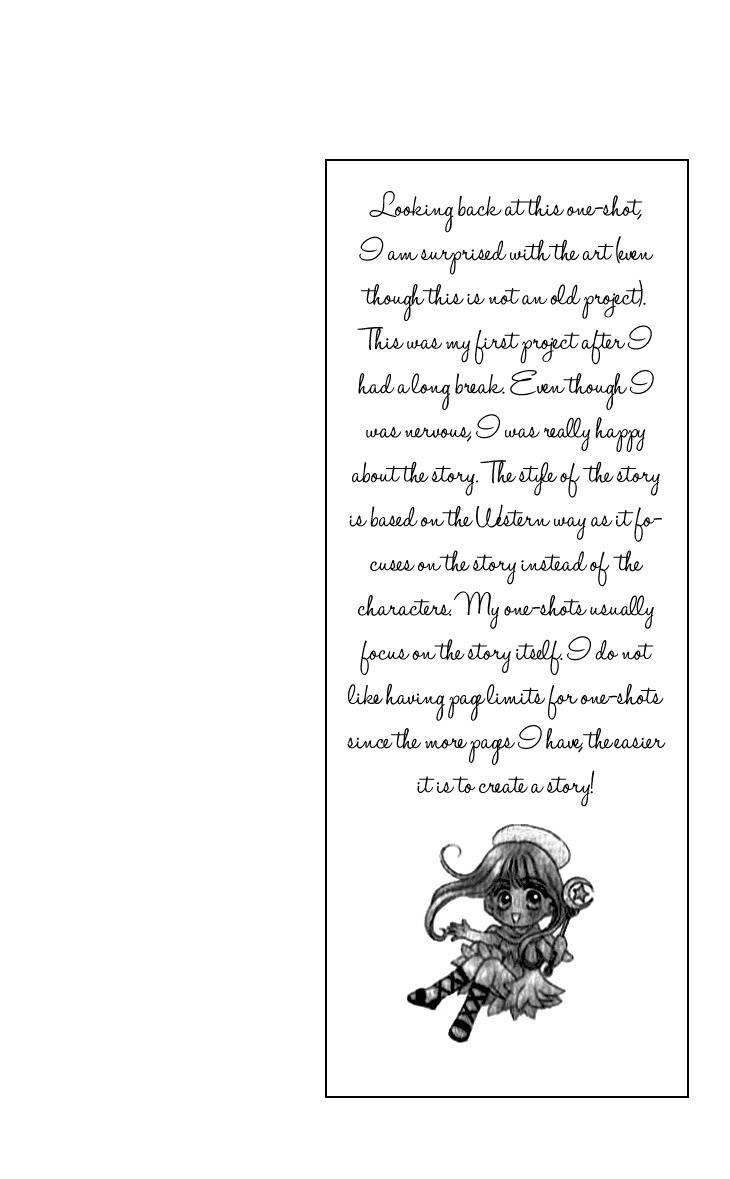 Looking back at this one-shot,
I am surprised with the art (even
though this is not an old project).
This was my first project after I
had a long break. Even though I
was nervous, I was really happy
about the story. The style of the story
is based on the Western way as it fo-
cuses on the story instead of the
characters. My one-shots usually
focus on the story itself. I do not
like having page limits for one-shots
since the more pages I have, the easier
it is to create a story!